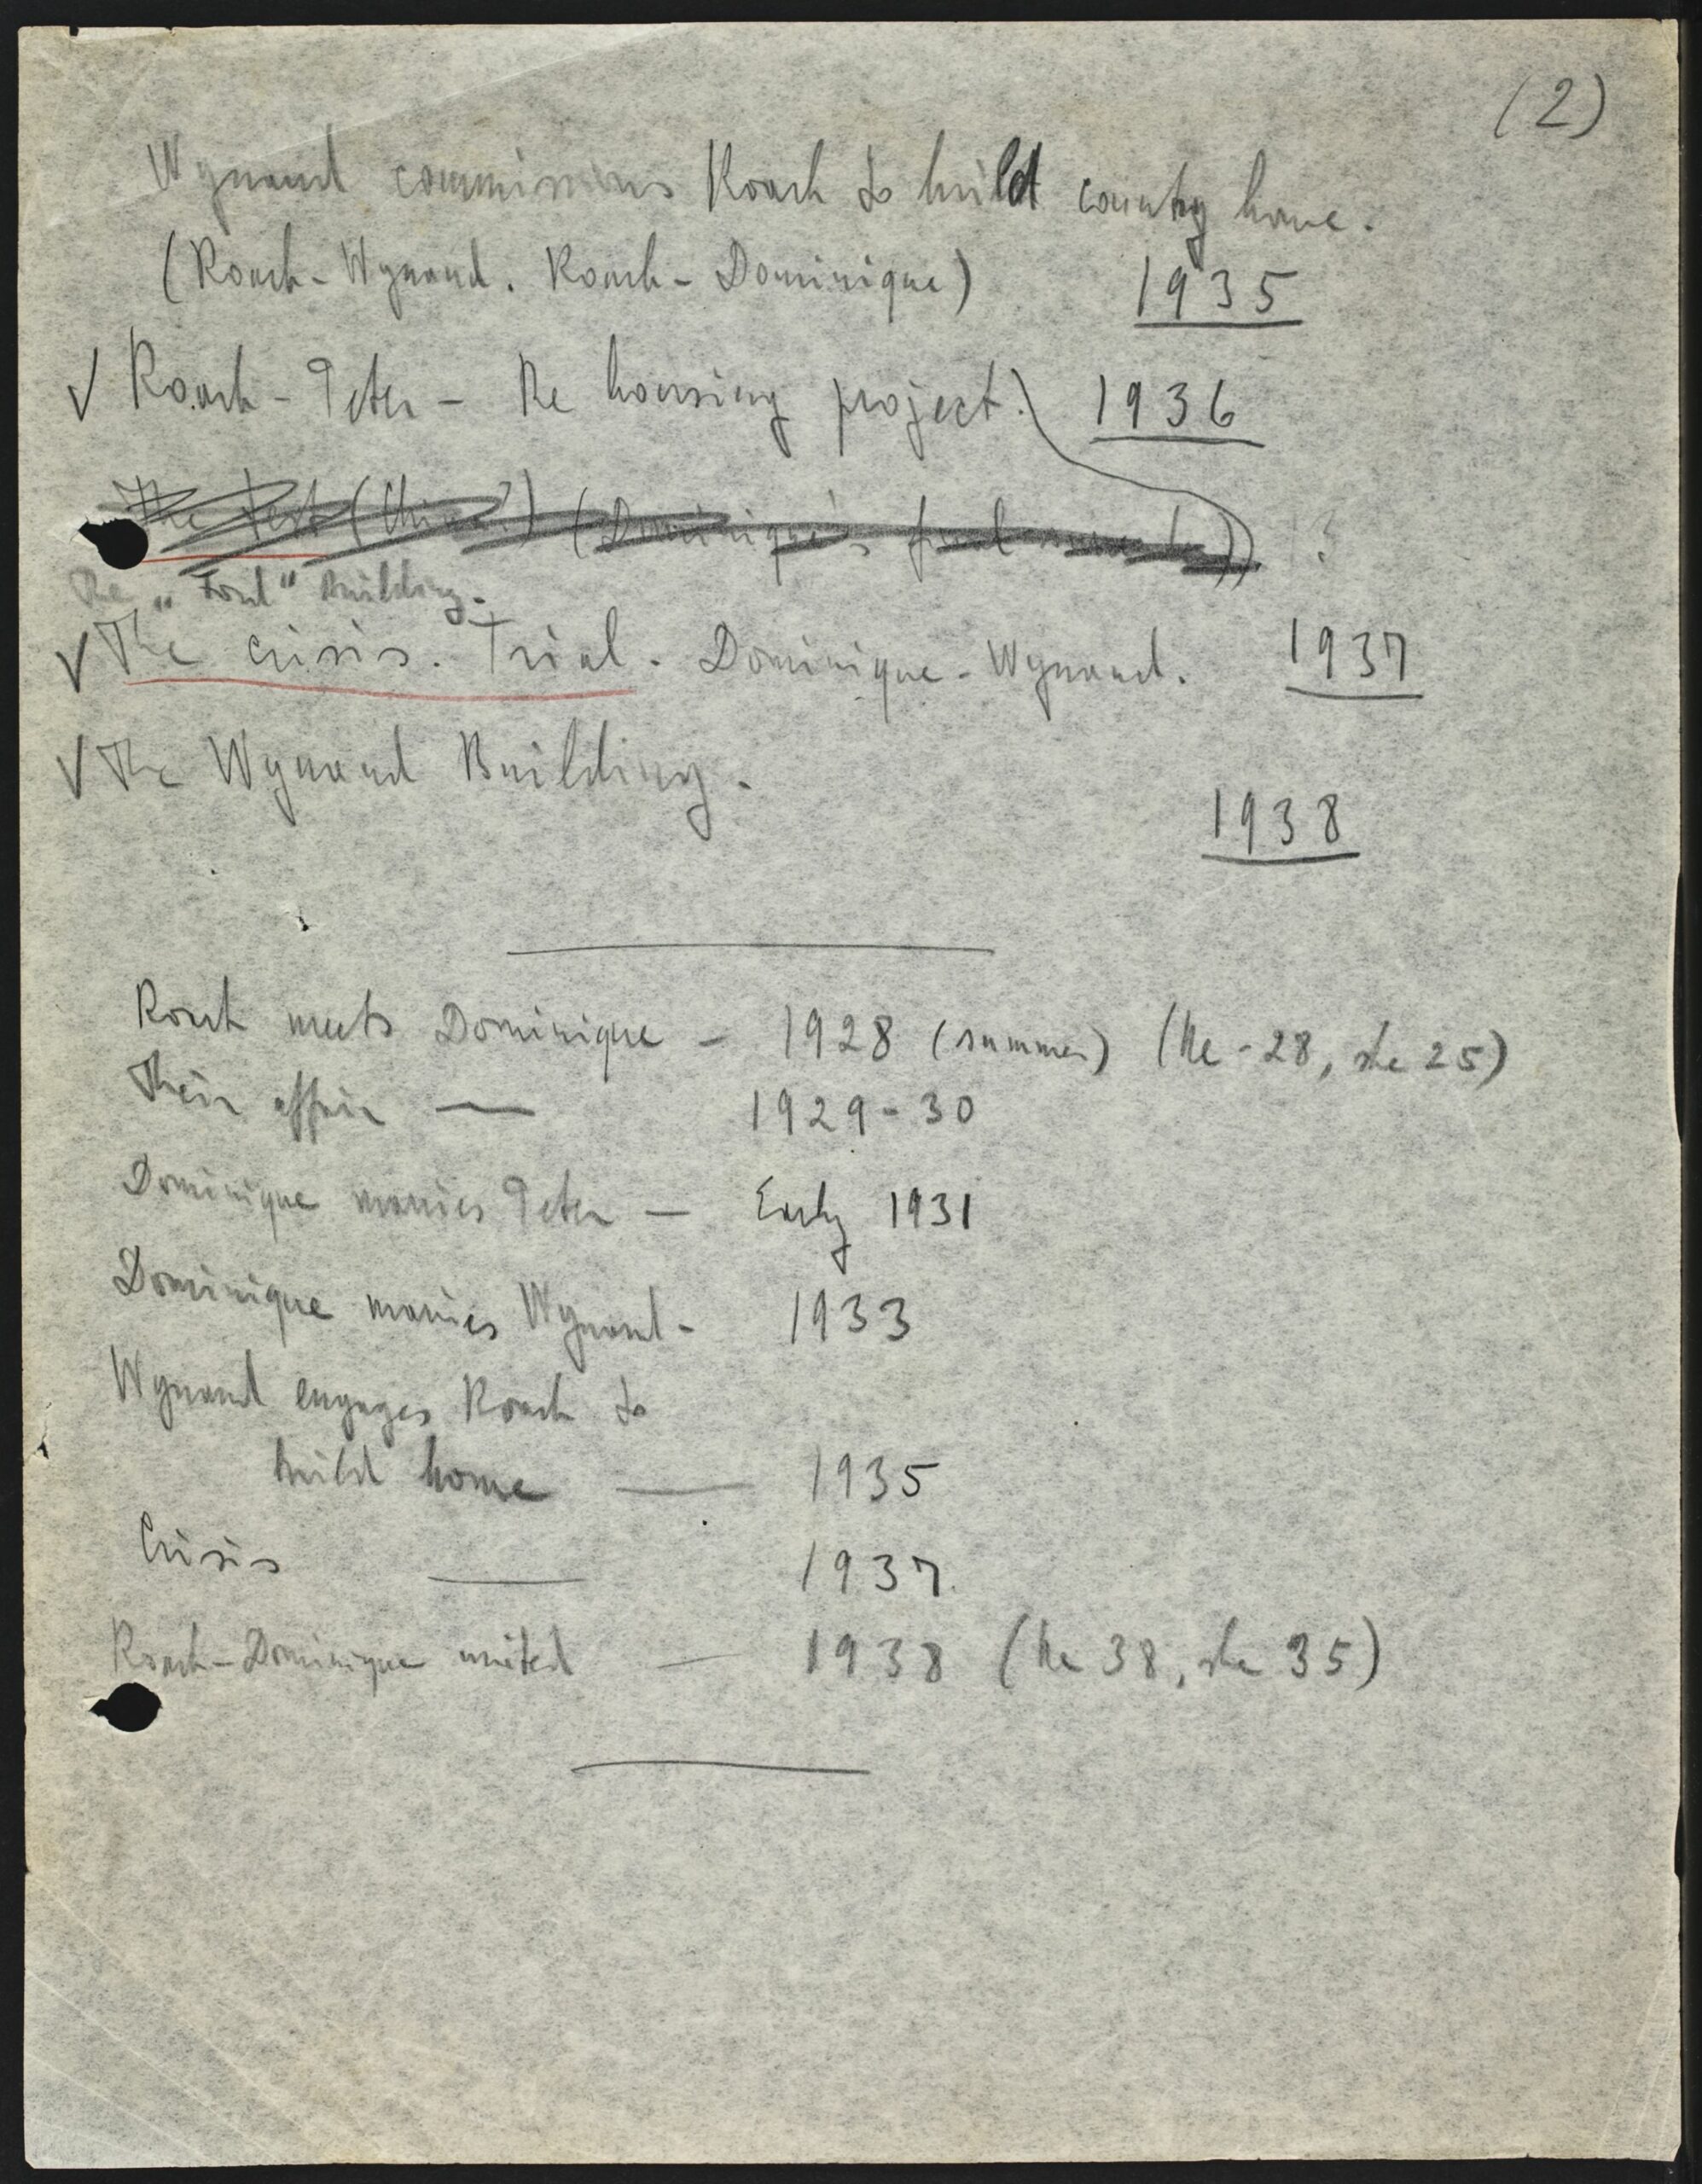 (2)
Wynand commissions Roark to build country home.
(Roark - Wynand. Roark - Dominique) 1935
✓ Roark - Peter - The housing project. 1936
The test (Dominique's final
The "Ford" Building.
✓ The crisis. Trial. Dominique - Wynand. 1937
✓ The Wynand Building.
1938
Roark meets Dominique - 1928 (summer) (He - 28, she 25)
Their affair — 1929-30
Dominique marries Peter — Early 1931
Dominique marries Wynand - 1933
Wynand engages Roark to
build home — 1935
Crisis — 1937
Roark - Dominique united — 1938 (he 38, she 35)